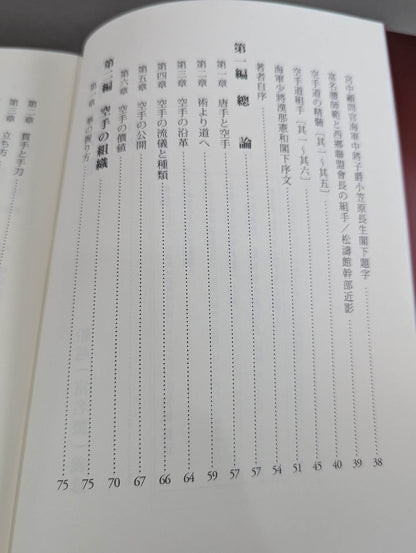 宮中顧問官海軍中將子爵小笠原長生閣下題字 38
富名腰師範と西郷聯盟會長の組手／松濤館幹部近影 39
空手道の精髓［其一～其五］ 40
空手道組手［其一～其六］ 45
海軍少將漢那憲和閣下序文 51
著者自序 54
第一編 總論 57
第一章 唐手と空手 57
第二章 術より道へ 59
第三章 空手の沿革 64
第四章 空手の流儀と種類 66
第五章 空手の公開 67
第六章 空手の價値 70
第二編 空手の組織 75
第一章 拳の握り方 75
第二章 貫手と手刀
第三章 立ち方